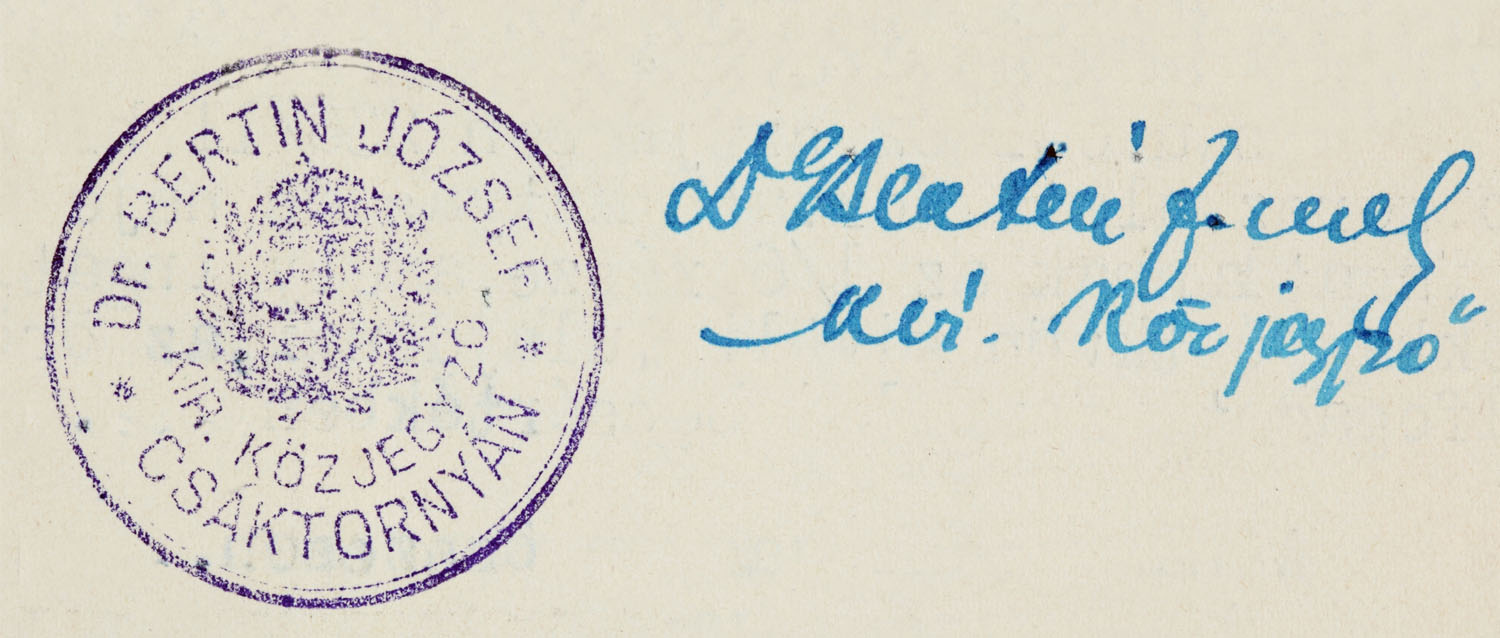 Dr. BERTIN JÓZSEF
KIR. KÖZJEGYZŐ
CSÁKTORNYÁN
Dr Bertin József
kir. közjegyző